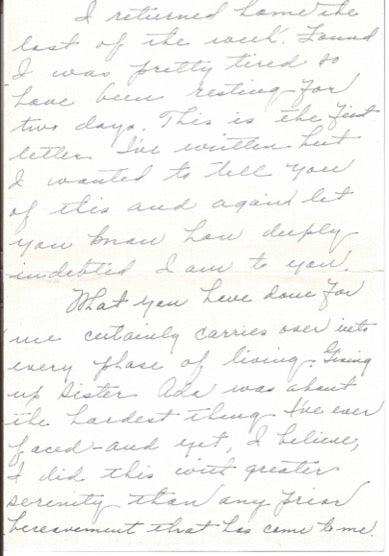 I returned home the
last of the week. Found
I was pretty tired so
have been resting for
two days. This is the first
letter I've written but
I wanted to tell you
of this and again let
you know how deeply
indebted I am to you.
What you have done for
me certainly carries over into
every phase of living. Giving
up Sister Ada was about
the hardest thing I've ever
faced - and yet, I believe,
I did this with greater
serenity than any prior
bereavement that has come to me.